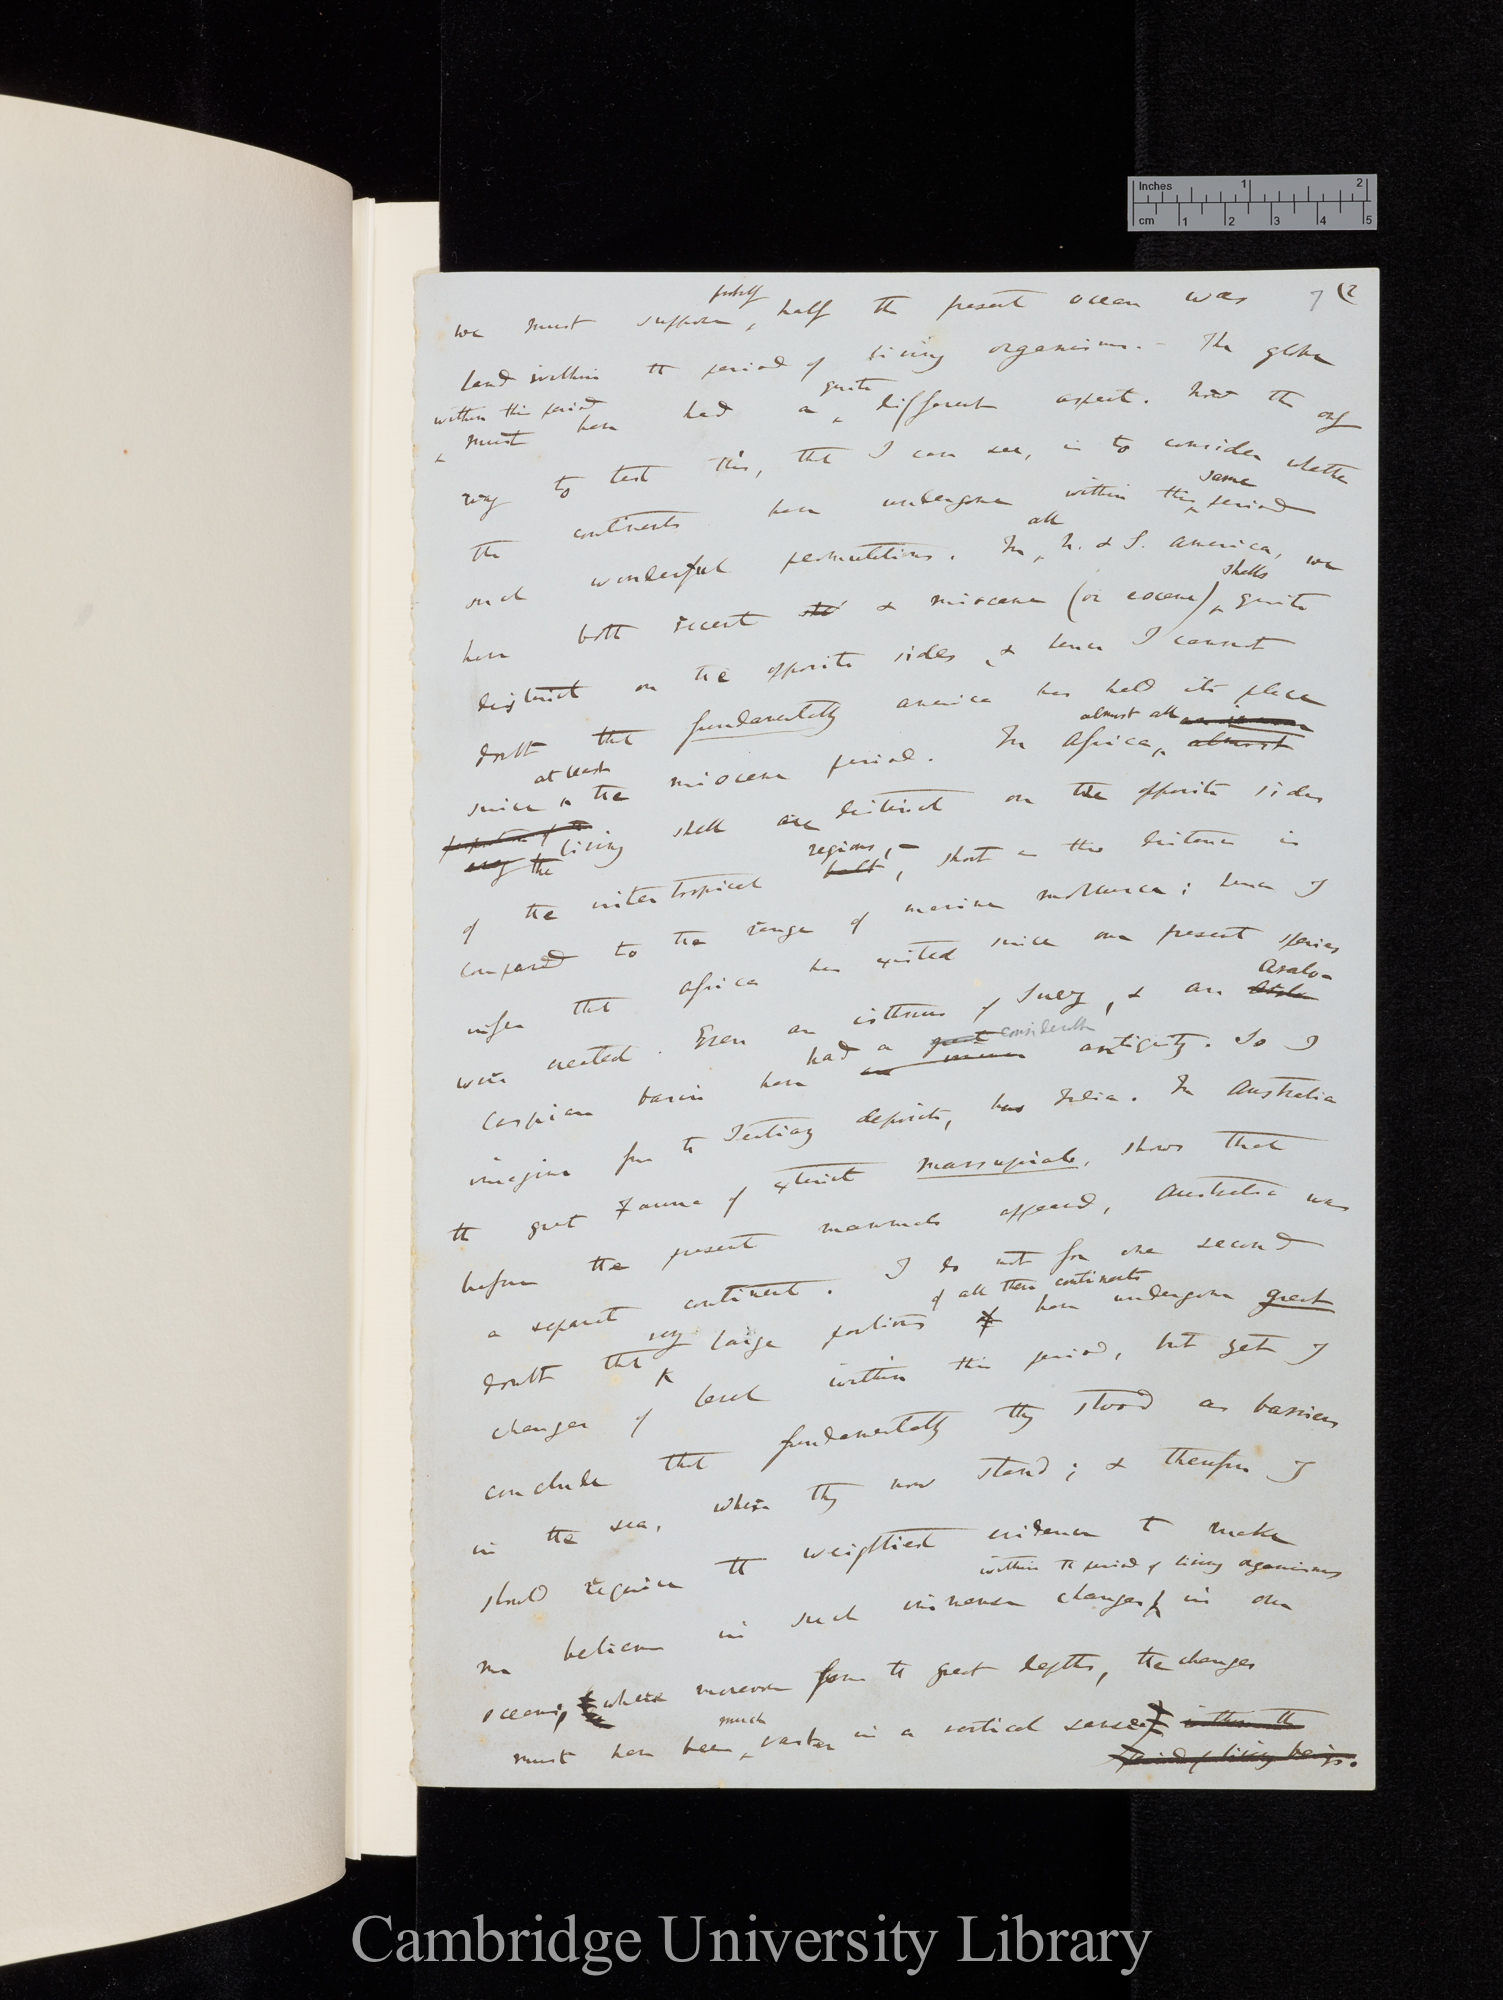 Inches 1 2
cm 1 2 3 4 5
7 (2
probly
we must suppose, half the present ocean was
land within the period of living organisms. – The globe
within this period quite
must have had a different aspect. Now the only
way to test this, that I can see, is to consider whether
same
the continents have undergone within this period
all
such wonderful permutations. In N. & S. America, we
shells
have both recent & miocene (or eocene) quite
distinct on the opposite sides, & hence I cannot
doubt that fundamentally America has held its place
at least almost all
since the miocene period. In Africa, almost
the living shells are distinct on the opposite sides
regions, –
of the inter tropical belt, short as the distance is
compared to the range of marine mollusca; hence I
infer that Africa has existed since our present species
Aralo-
were created. Even an isthmus of Suez, & an
had a great considerable
Caspian basin have antiquity. So I
imagine from the Tertiary deposits, has India. In Australia
the great Fauna of extinct marsupials, shows that
before the present mammals appeared, Australia was
a separate continent. I do not for one second
very of all these continents
doubt that large portions have undergone great
changes of level within this period, but yet I
conclude that fundamentally they stood as barriers
in the sea, where they now stand; & therefore I
should require the weightiest evidence to make
within the period of living organisms
me believe in such immense changes in our
oceans, where moreover from the great depths, the changes
much
must have been vaster in a vertical sense.
within the
period of living beings.
Cambridge University Library